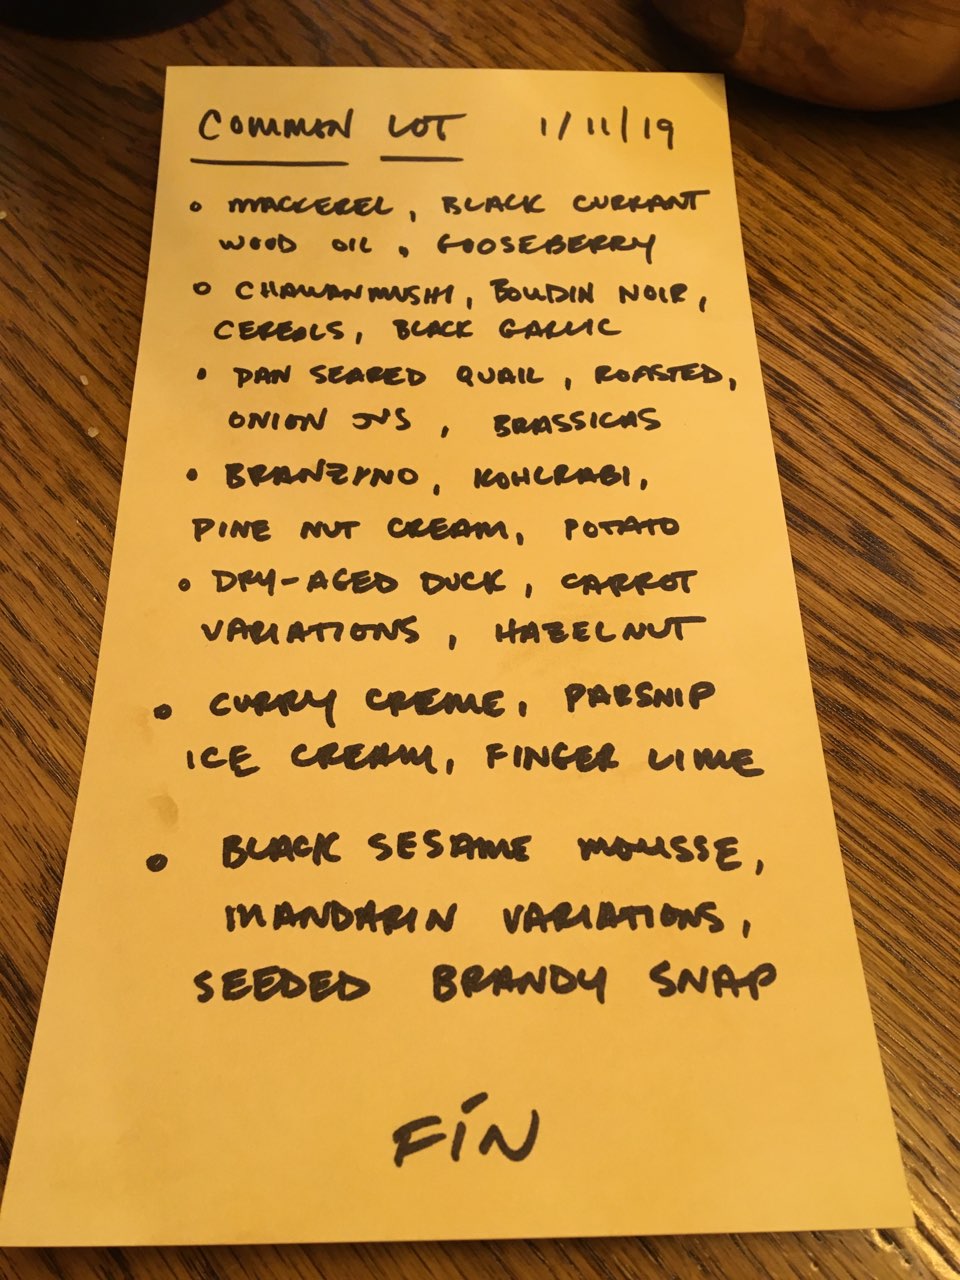 COMMON LOT 1/11/19
• MACKEREL, BLACK CURRANT
WOOD OIL, GOOSEBERRY
• CHAWANMUSHI, BOUDIN NOIR,
CEREALS, BLACK GARLIC
• PAN SEARED QUAIL, ROASTED,
ONION JUS, BRASSICAS
• BRANZINO, KOHLRABI,
PINE NUT CREAM, POTATO
• DRY-AGED DUCK, CARROT
VARIATIONS, HAZELNUT
• CURRY CREME, PARSNIP
ICE CREAM, FINGER LIME
• BLACK SESAME MOUSSE,
MANDARIN VARIATIONS,
SEEDED BRANDY SNAP
FÍN